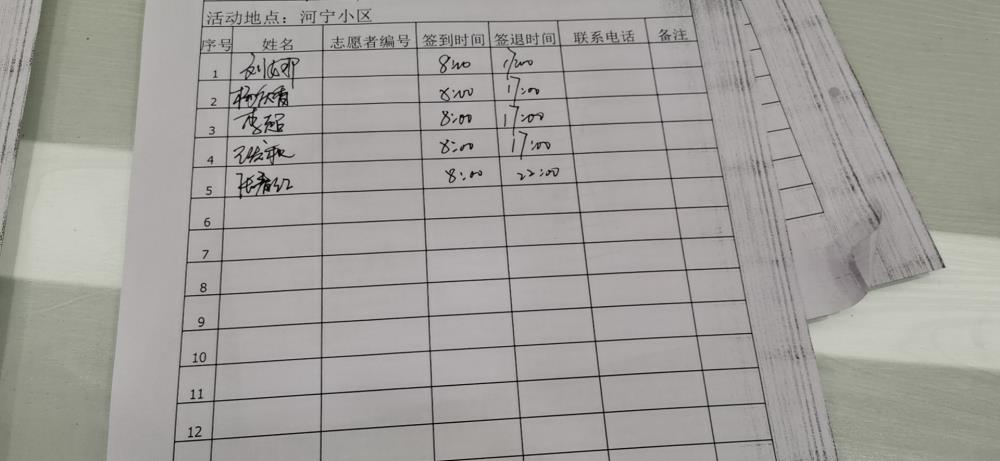 活动地点：河宁小区
序号 姓名 志愿者编号 签到时间 签退时间 联系电话 备注
1 8:00 17:00
2 杨欣香 8:00 17:00
3 李强 8:00 17:00
4 8:00 17:00
5 张春红 8:00 22:00
6
7
8
9
10
11
12